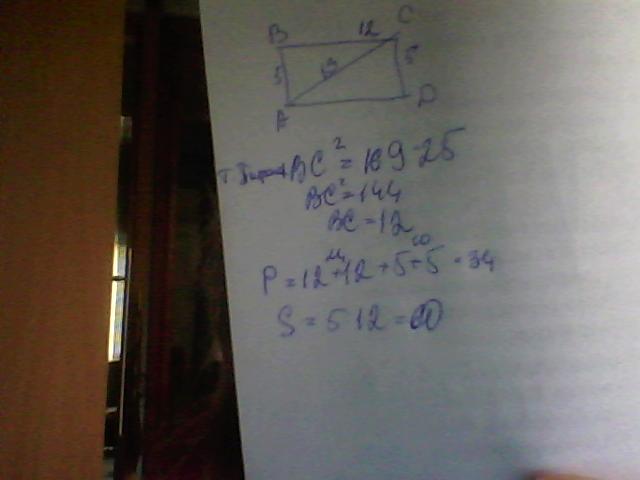 B 12 C
5 13 5
A D
BC² = 169-25
BC² = 144
BC = 12
P = 12+12+5+5=34
S = 5 12 = 60